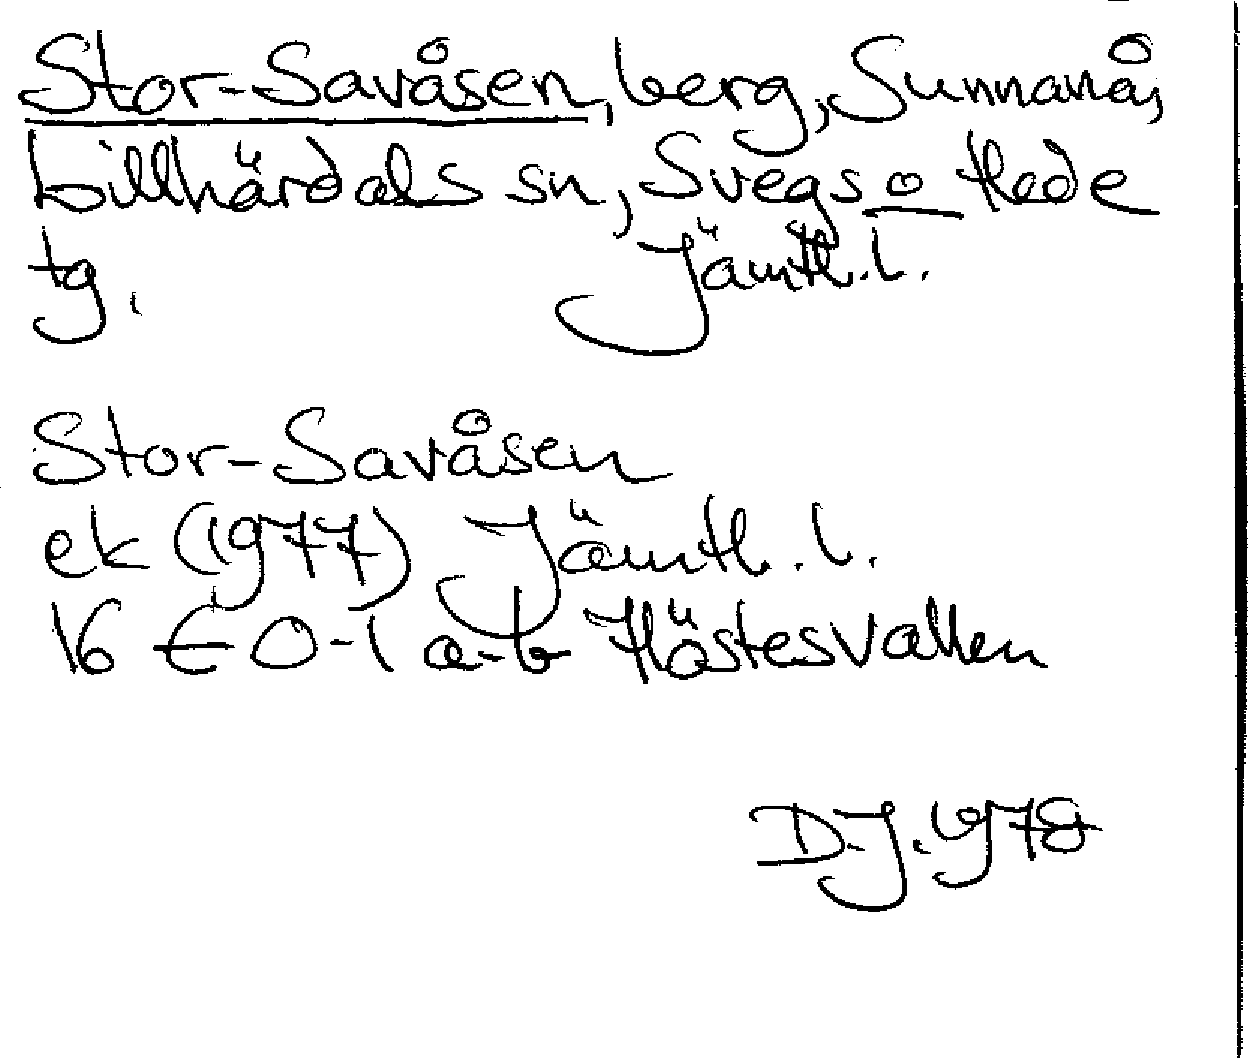 Stor-Savåsen, berg, Sunnanå,
Lillhärdals sn, Svegs o Hede
tg. Jämtl. l.
Stor-Savåsen
ek (1977) Jämtl. l.
16 E 0-1 a-b Höstesvallen
D.J. 1978